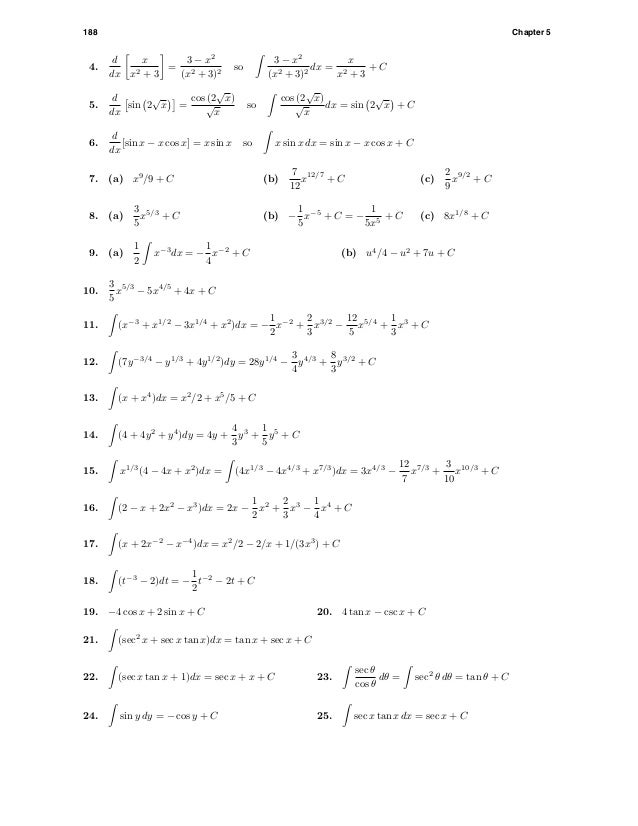 188 Chapter 5
4. d/dx [x/(x² + 3)] = (3 − x²)/(x² + 3)² so ∫ (3 − x²)/(x² + 3)² dx = x/(x² + 3) + C
5. d/dx [sin (2√x)] = cos (2√x)/√x so ∫ cos (2√x)/√x dx = sin (2√x) + C
6. d/dx [sin x − x cos x] = x sin x so ∫ x sin x dx = sin x − x cos x + C
7. (a) x⁹/9 + C (b) 7/12 x^{12/7} + C (c) 2/9 x^{9/2} + C
8. (a) 3/5 x^{5/3} + C (b) −1/5 x^{−5} + C = −1/(5x⁵) + C (c) 8x^{1/8} + C
9. (a) 1/2 ∫ x^{−3}dx = −1/4 x^{−2} + C (b) u⁴/4 − u² + 7u + C
10. 3/5 x^{5/3} − 5x^{4/5} + 4x + C
11. ∫ (x^{−3} + x^{1/2} − 3x^{1/4} + x²)dx = −1/2 x^{−2} + 2/3 x^{3/2} − 12/5 x^{5/4} + 1/3 x³ + C
12. ∫ (7y^{−3/4} − y^{1/3} + 4y^{1/2})dy = 28y^{1/4} − 3/4 y^{4/3} + 8/3 y^{3/2} + C
13. ∫ (x + x⁴)dx = x²/2 + x⁵/5 + C
14. ∫ (4 + 4y² + y⁴)dy = 4y + 4/3 y³ + 1/5 y⁵ + C
15. ∫ x^{1/3}(4 − 4x + x²)dx = ∫ (4x^{1/3} − 4x^{4/3} + x^{7/3})dx = 3x^{4/3} − 12/7 x^{7/3} + 3/10 x^{10/3} + C
16. ∫ (2 − x + 2x² − x³)dx = 2x − 1/2 x² + 2/3 x³ − 1/4 x⁴ + C
17. ∫ (x + 2x^{−2} − x^{−4})dx = x²/2 − 2/x + 1/(3x³) + C
18. ∫ (t^{−3} − 2)dt = −1/2 t^{−2} − 2t + C
19. −4 cos x + 2 sin x + C 20. 4 tan x − csc x + C
21. ∫ (sec² x + sec x tan x)dx = tan x + sec x + C
22. ∫ (sec x tan x + 1)dx = sec x + x + C 23. ∫ sec θ/cos θ dθ = ∫ sec² θ dθ = tan θ + C
24. ∫ sin y dy = − cos y + C 25. ∫ sec x tan x dx = sec x + C